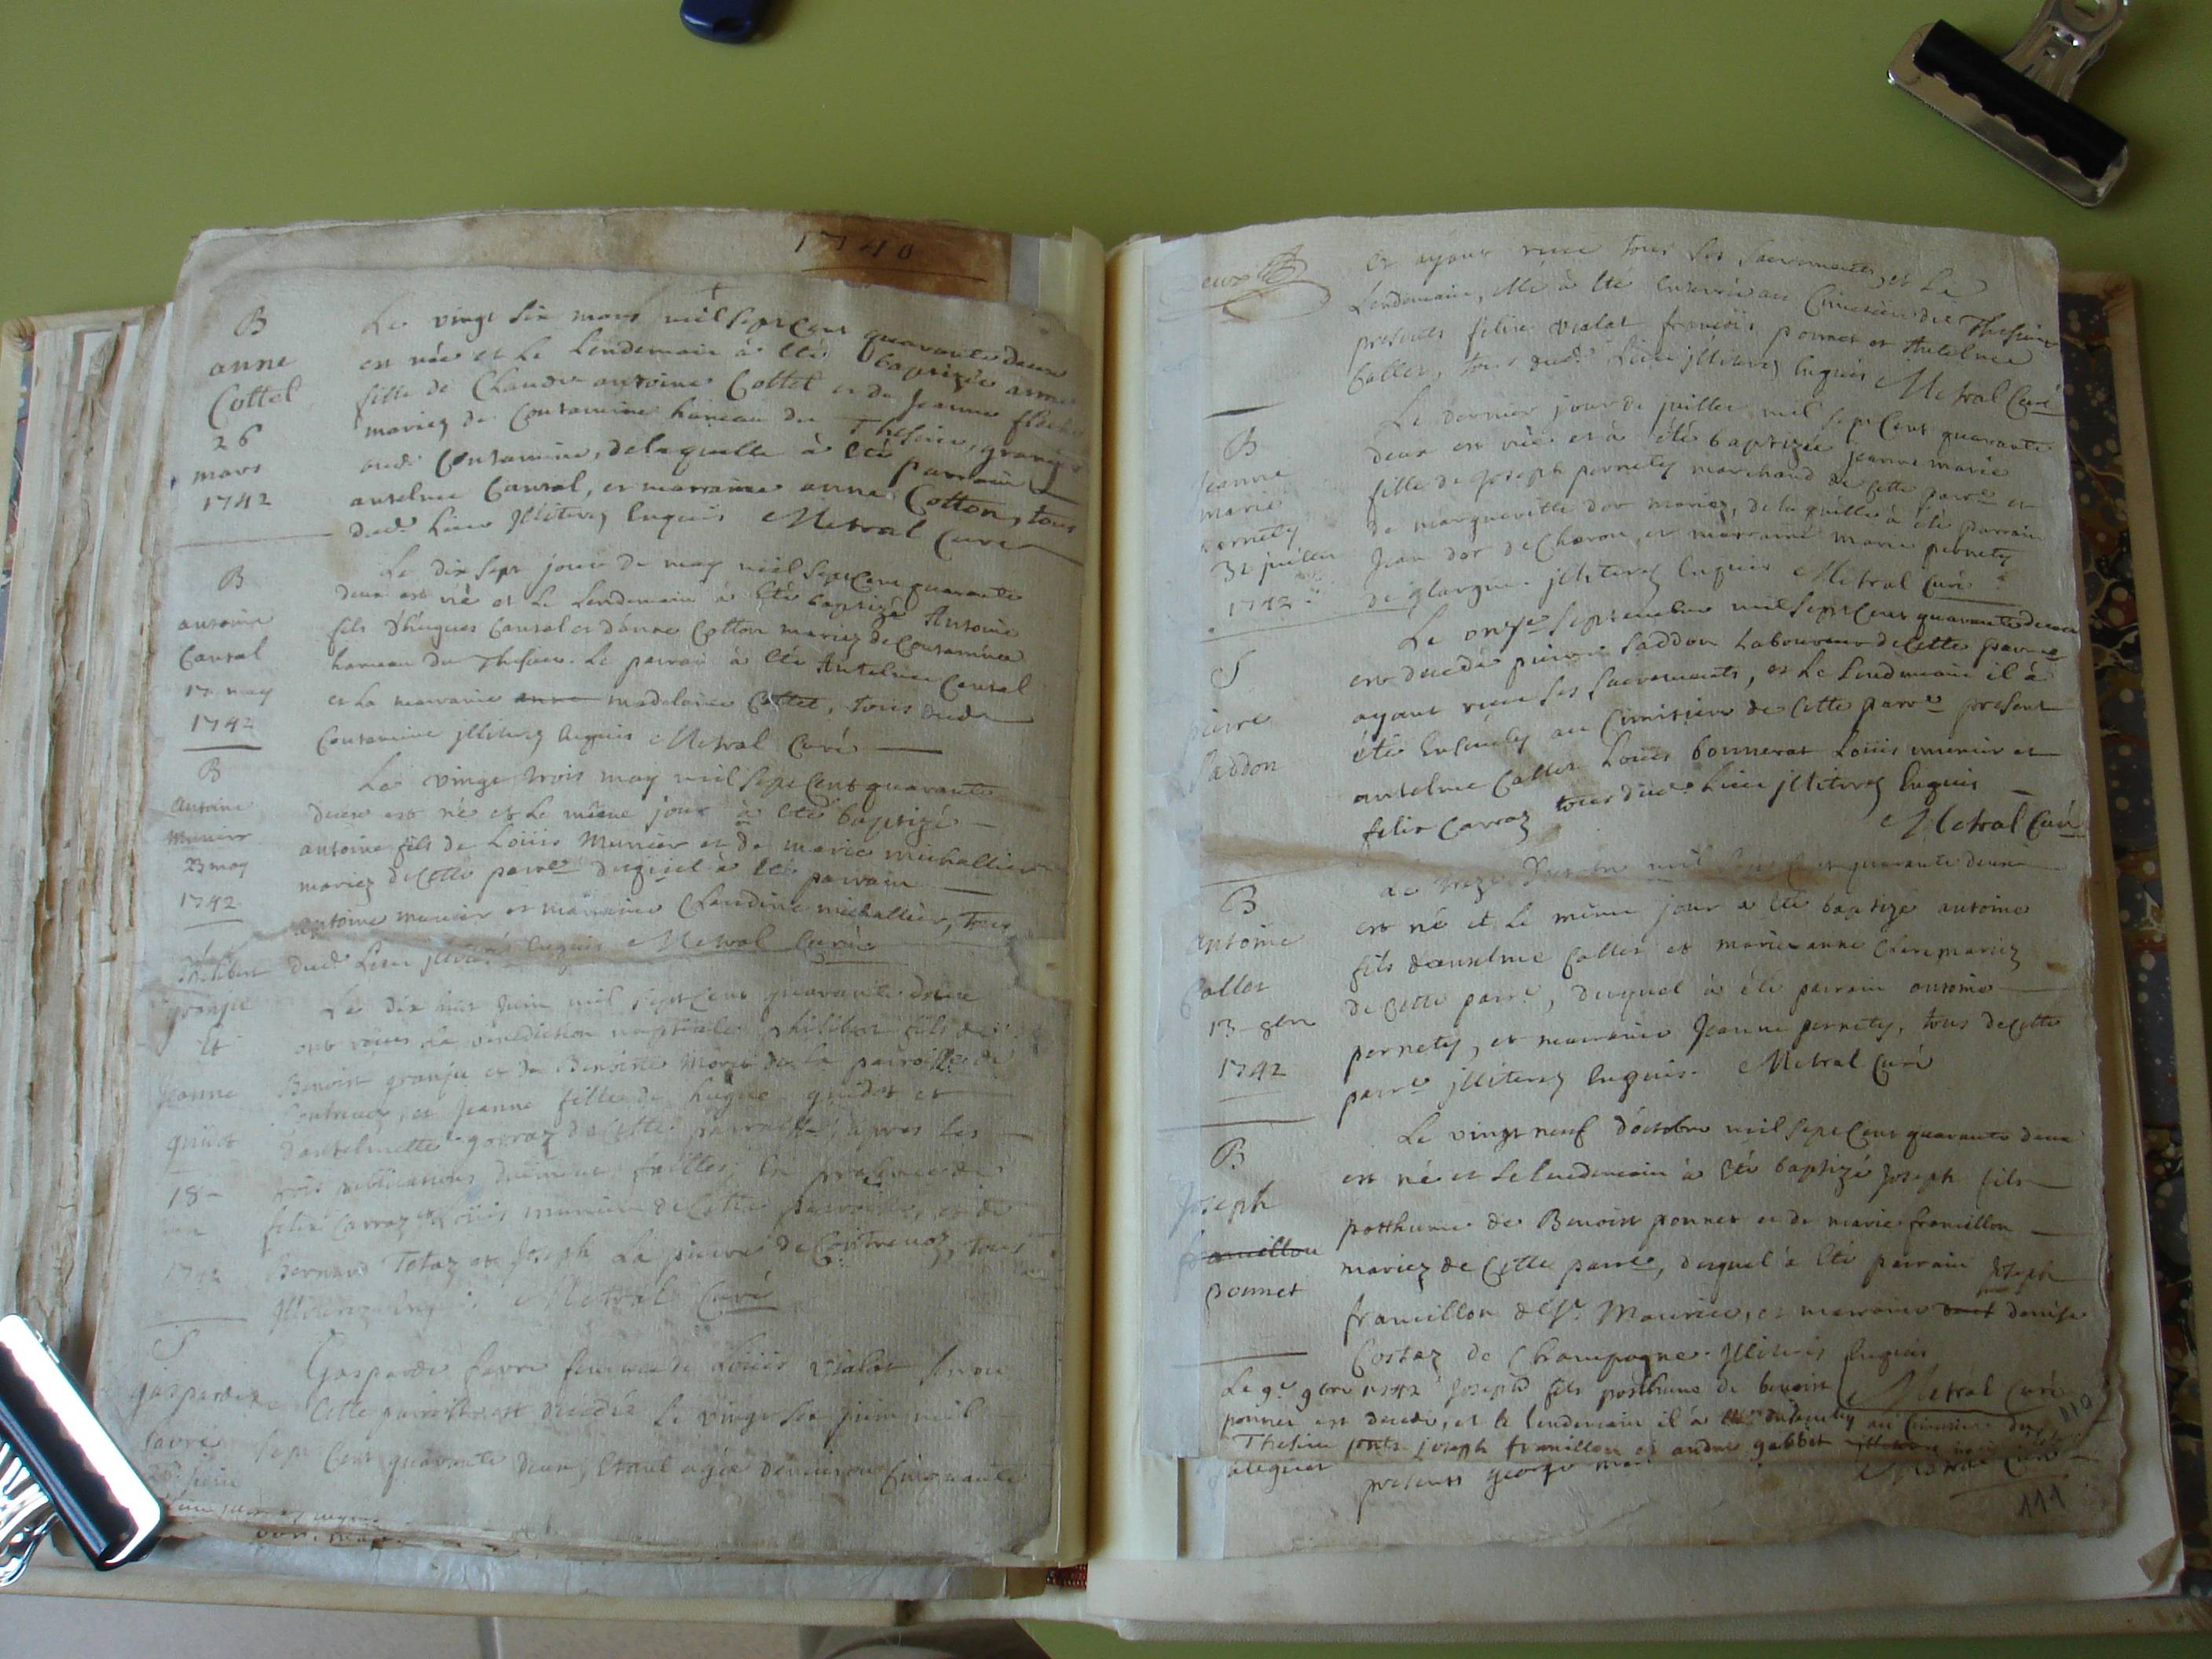 1740
B
anne
Cottel
26
mars
1742
Le vingt six mars mil sept cent quarante deux
est née et le lendemain à été baptizée anne
fille de Claude antoine Cottel et de Jeanne
mariez de Contamine hameau de Thesieu,
aud. Contamine, de laquelle à été parrain
antelme Cansal, et marraine anne Cotton, tous
dud. Lieu illiterez enquis Metral Curé
B
antoine
Cansal
17 may
1742
Le dix sept jour de may mil sept cent quarante
deux est né et le lendemain à été baptizé Antoine
fils d'hugues Cansal et d'anne Cotton mariez de Contamine
hameau de Thesieu. Le parrain à été Antelme Cansal
et la marraine anne madelaine Cottet, tous dud.
Contamine illiterez enquis Metral Curé
B
Antoine
Munier
23 may
1742
Le vingt trois may mil sept cent quarante
deux est né et le même jour à été baptizé
antoine fils de Loüis Munier et de marie michallier
mariez de cette parre duquel à été parrain
antoine munier et marraine Claudine michallier, tous
dud. Lieu illiterez enquis Metral Curé
philibert
granju
et
Jeanne
guidot
18
1742
Le dix huit Juin mil sept cent quarante deux
ont reçus la bénédiction nuptiale philibert fils de
Benoit granju et de Benoiste More de la parroisse de
Contrevoz, et Jeanne fille de hugue guidot et
d'antelmette gorraz de cette parroisse, apres les
trois publications duement faittes, en presence de
felix Carraz et Loüis munier de cette parroisse, et de
Bernard Tetaz et Joseph La pierre de Contrevoz, tous
illiterez enquis. Metral Curé
S
gasparde
favre
26 juin
Gasparde favre femme de Loüis vialat
cette parroisse est décédée le vingt six juin mil
sept cent quarante deux, étant agée d'environ cinquante
deux
et ayant receu tous les sacrements, et le
Lendemain, elle à été enterrée au Cimetière de Thesieu
presents felix vialat françois ponnet et Antelme
Caller, tous dud. Lieu illiterez enquis Metral Curé
B
Jeanne
marie
pernety
31 juillet
1742
Le dernier jour de juillet mil sept cent quarante
deux est née et à été baptizée jeanne marie
fille de Joseph pernety marchand de cette parre et
de margueritte dor mariez, de laquelle à été parrain
Jean dor de Charon, et marraine marie pernety
de glargin. illiterez enquis Metral Curé
S
pierre
Saddon
Le onze septembre mil sept cent quarante deux
est decedé pierre Saddon Laboureur de cette parre
ayant receu ses sacrements, et le lendemain il à
été ensevely au Cimitiere de cette parre present
antelme Caller Loüis bonnerat Loüis munier et
felix Carraz tous dud. Lieu illiterez enquis
Metral Curé
B
Antoine
Caller
13
1742
Le treize mil sept cent quarante deux
est né et le même jour a été baptizé antoine
fils d'antelme Caller et marie anne Clere mariez
de cette parre, duquel à été parrain antoine
pernety, et marraine Jeanne pernety, tous de cette
parre illiterez enquis. Metral Curé
B
Joseph
framillon
ponnet
Le vingt neuf d'octobre mil sept cent quarante deux
est né et le lendemain à été baptizé Joseph fils
posthume de Benoit ponnet et de marie framillon
mariez de cette parre, duquel à été parrain Joseph
framillon de St. Maurice, et marraine denise
Costaz de Champagne. illiterez enquis
Metral Curé
Le 9e 9bre 1742 Joseph fils posthume de benoit
ponnet est decedé, et le lendemain il à été ensevely au Cimitiere de
Thesieu pnts joseph framillon et andre gabbet
presents george
110
111